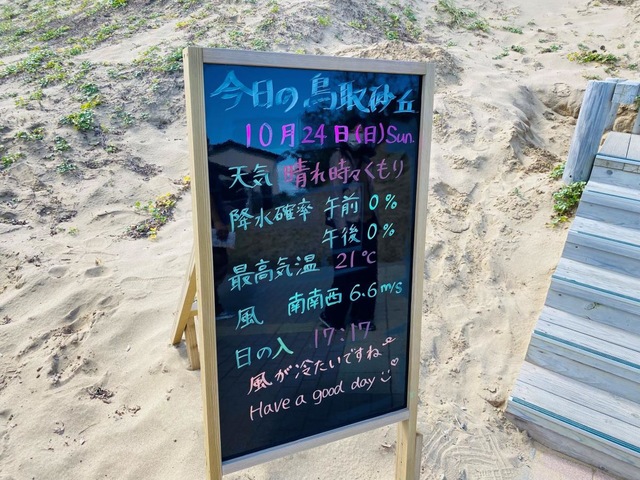 今日の鳥取砂丘
10月24日(日)Sun.
天気 晴れ時々くもり
降水確率 午前 0%
午後 0%
最高気温 21℃
風 南南西 6.6m/s
日の入 17:17
風が冷たいですね
Have a good day